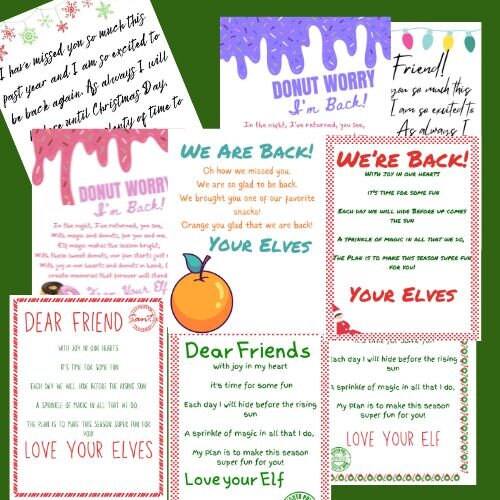 I have missed you so much this
past year and I am so excited to
be back again. As always I will
until Christmas Day,
plenty of time to
DONUT WORRY
I'm Back!
In the night, I've returned, you see,
Friend!!
you so much this
I am so excited to
As always I
DONUT WORRY
I'm Back!
In the night, I've returned, you see,
With magic and donuts, for you and me.
Elf magic makes the season bright,
With these sweet donuts, our fun starts
With joy in our hearts and donuts in hand,
create memories that forever will stand
From Your Elf
WE ARE BACK!
Oh how we missed you.
We are so glad to be back.
We brought you one of our favorite
snacks!
Orange you glad that we are back!
YOUR ELVES
WE'RE BACK!
WITH JOY IN OUR HEARTS
IT'S TIME FOR SOME FUN
EACH DAY WE WILL HIDE BEFORE UP COMES
THE SUN
A SPRINKLE OF MAGIC IN ALL THAT WE DO,
THE PLAN IS TO MAKE THIS SEASON SUPER FUN
FOR YOU!
YOUR ELVES
DEAR FRIEND
WITH JOY IN OUR HEARTS
IT'S TIME FOR SOME FUN
EACH DAY WE WILL HIDE BEFORE THE RISING SUN
A SPRINKLE OF MAGIC IN ALL THAT WE DO
THE PLAN IS TO MAKE THIS SEASON SUPER FUN FOR
YOU!
LOVE YOUR ELVES
Dear Friends
with joy in my heart
it's time for some fun
Each day I will hide before the rising
sun
A sprinkle of magic in all that I do,
My plan is to make this season
super fun for you!
Love your elf
it's time for some fun
Each day I will hide before the rising
sun
A sprinkle of magic in all that I do,
My plan is to make this season
super fun for you!
LOVE YOUR ELF